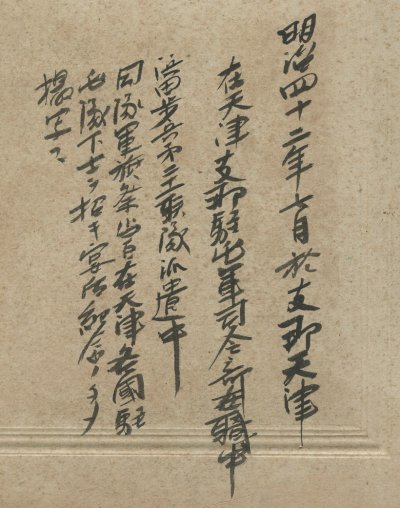 明治四十二年七月於支那天津
在天津支那駐屯軍司令部在職中
当歩兵第三十聯隊派遣中
同隊軍旗祭当日在天津各國駐
屯隊下士ヲ招キ宴会紀念ノタメ
撮写ス